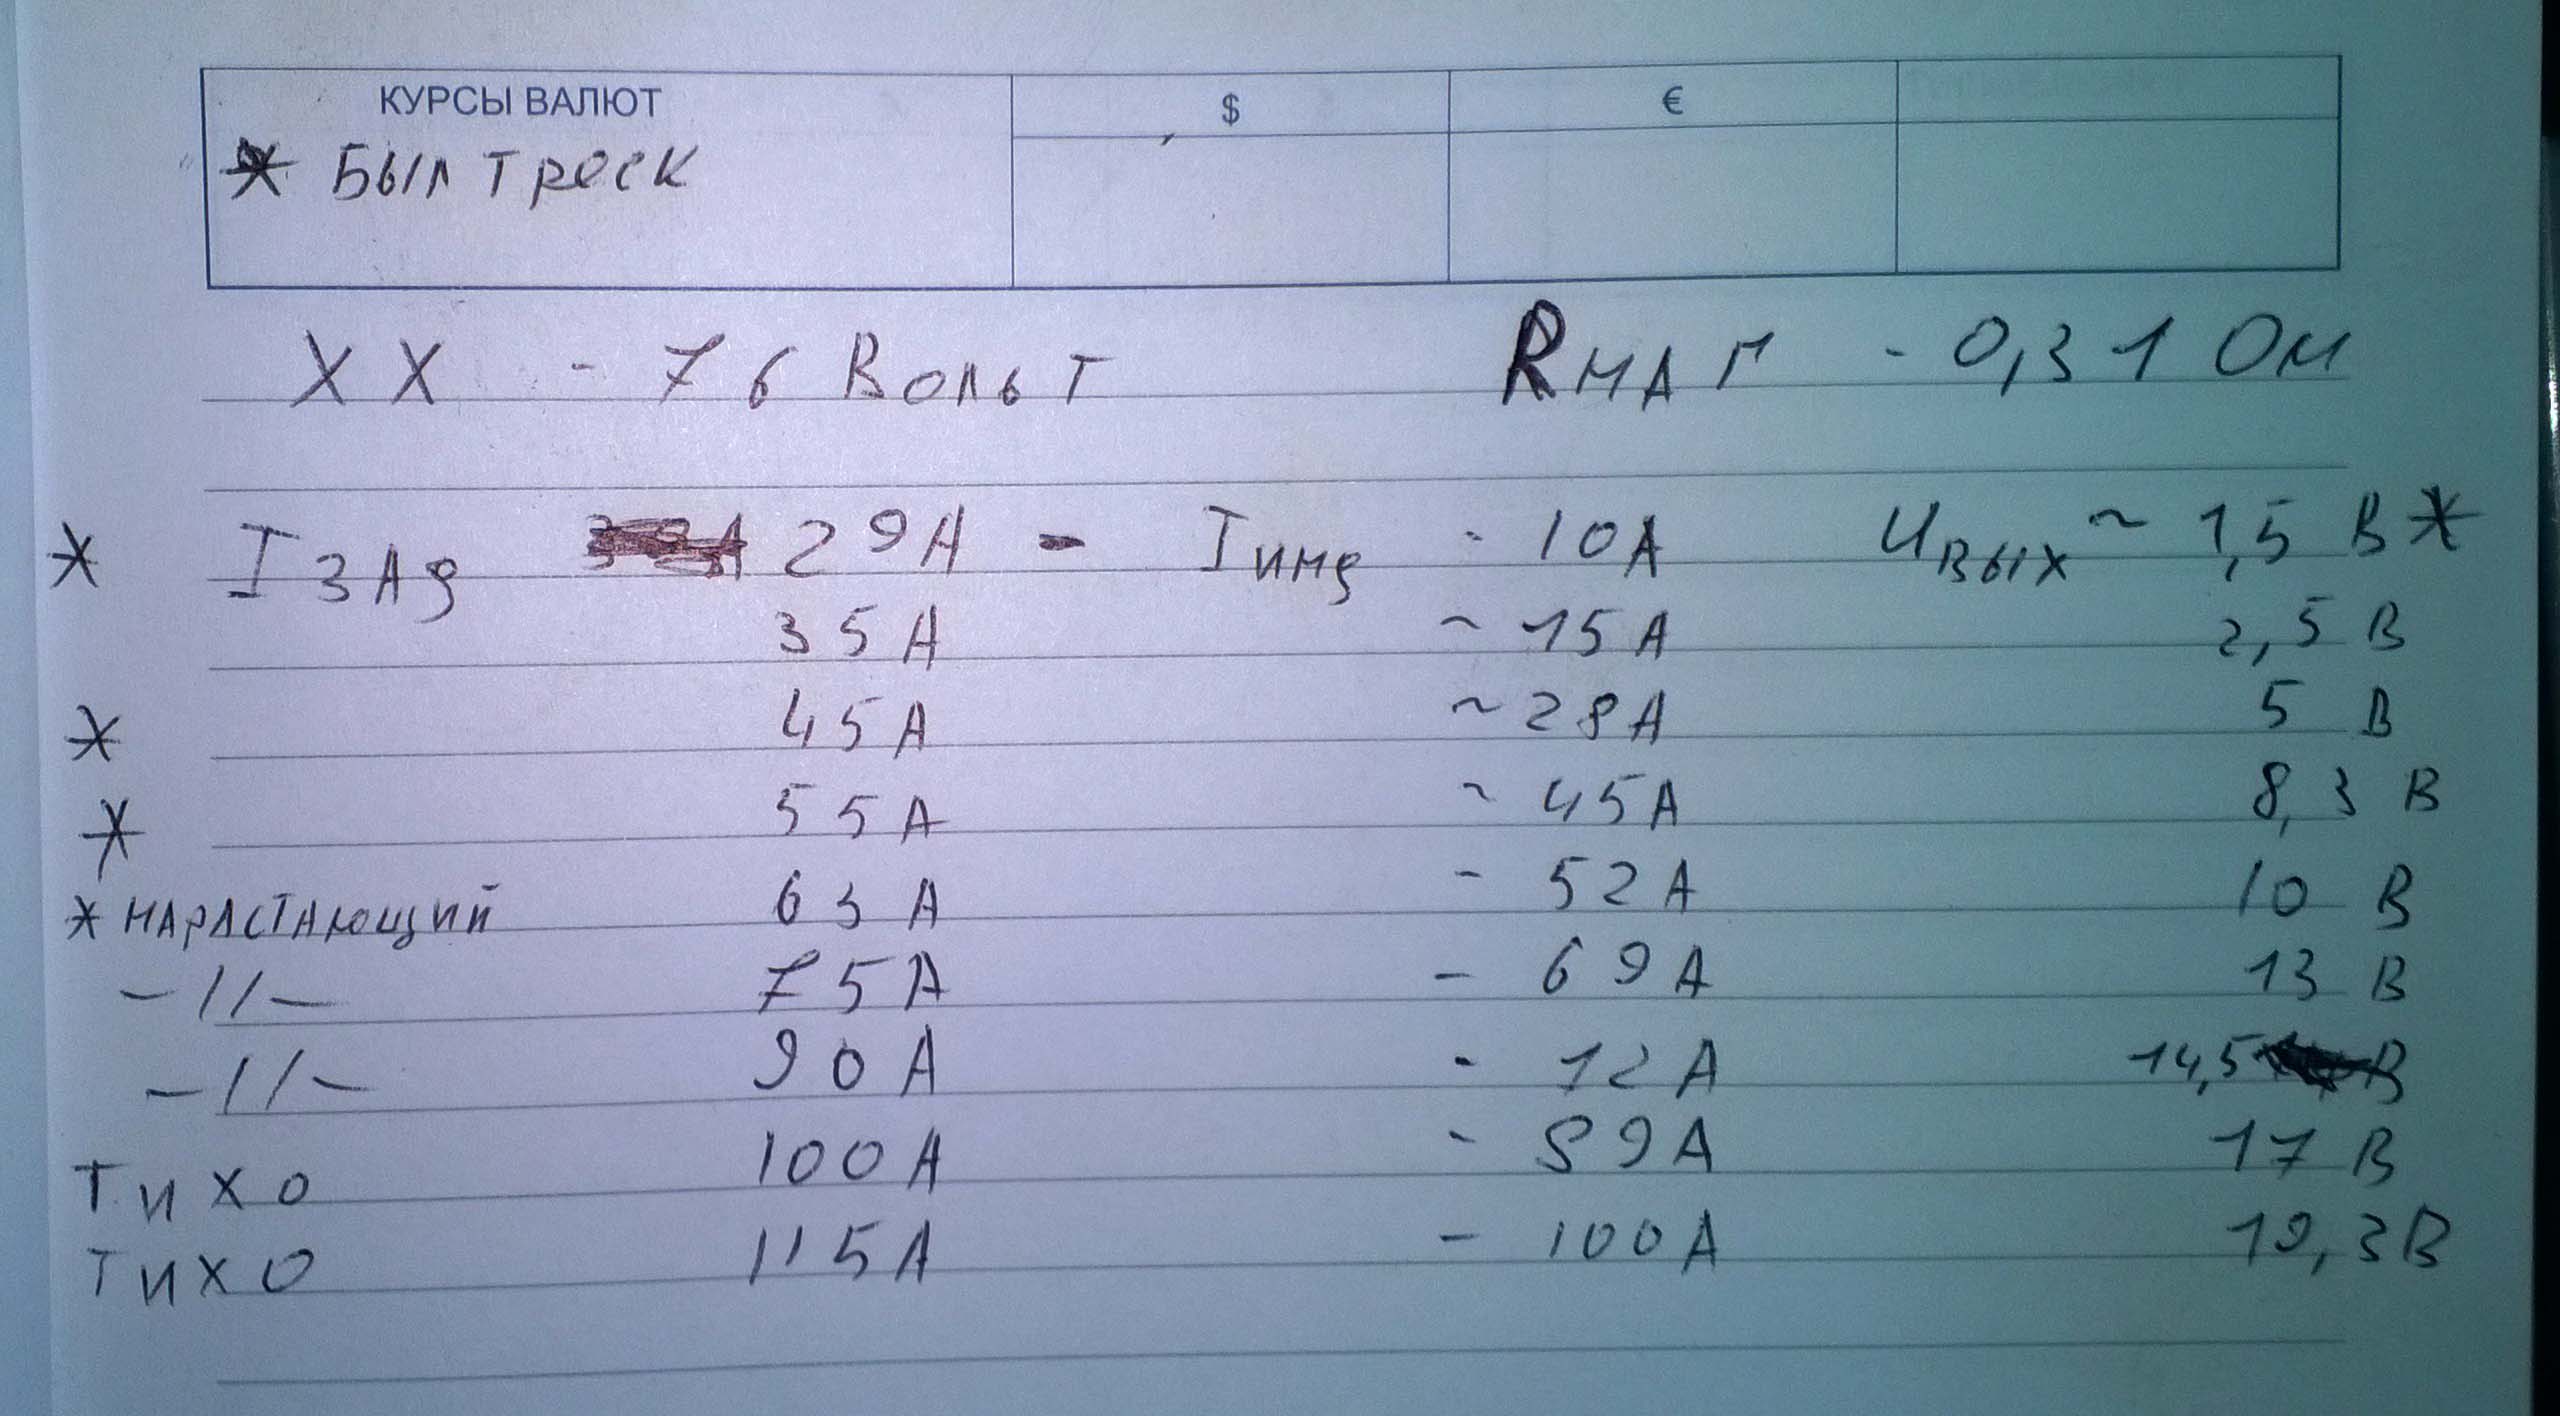 КУРСЫ ВАЛЮТ $ €
* БЫЛ ТРЕСК
ХХ - 76 Вольт RМАГ - 0,31 Ом
* Iзад 29А - Iинд - 10А Uвых ~ 1,5 В *
35А ~ 15А 2,5 В
* 45А ~ 28А 5 В
* 55А ~ 45А 8,3 В
* НАРАСТАЮЩИЙ 63А - 52А 10 В
-//- 75А - 69А 13 В
-//- 90А - 12А 14,5 В
ТИХО 100А - 89А 17 В
ТИХО 115А - 100А 19,3В